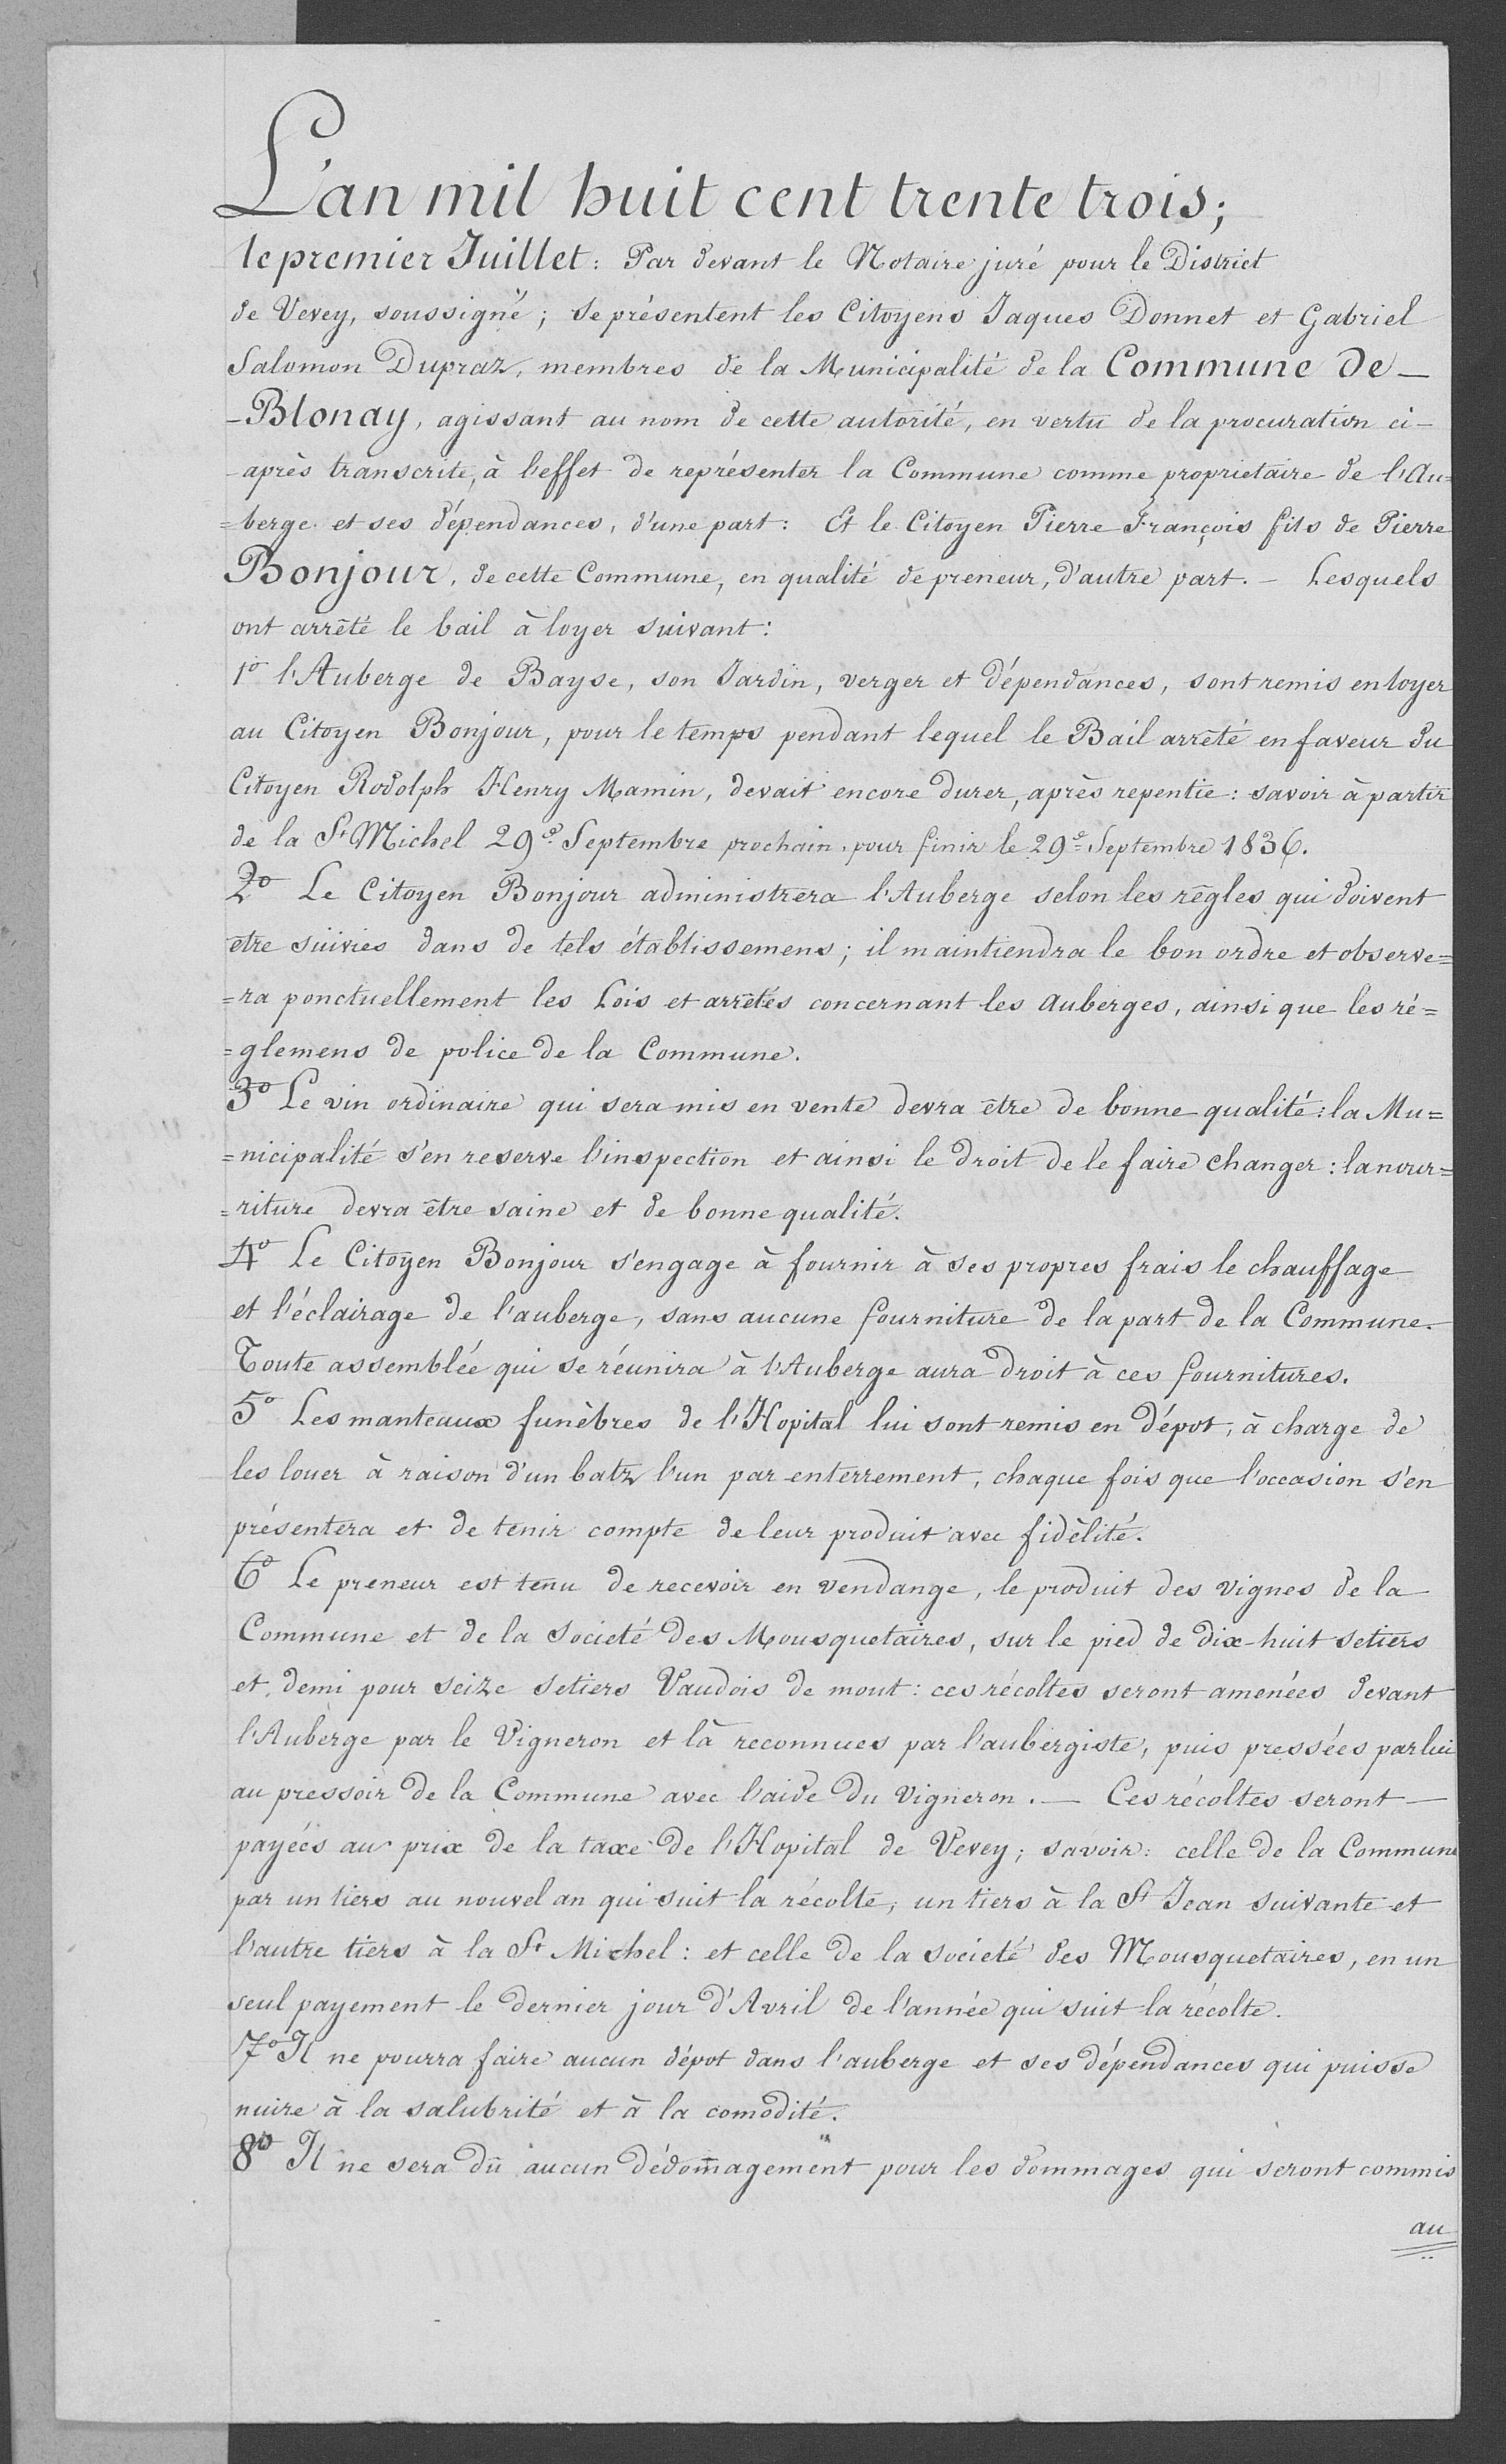 L'an mil huit cent trente trois;
le premier Juillet: Par devant le Notaire juré pour le District
de Vevey, soussigné; se présentent les Citoyens Jaques Donnet et Gabriel
Salomon Dupraz, membres de la Municipalité de la Commune de-
-Blonay, agissant au nom de cette autorité, en vertu de la procuration ci-
-après transcrite, à l'effet de représenter la Commune comme proprietaire de l'Au=
=berge et ses dépendances, d'une part: Et le Citoyen Pierre François fils de Pierre
Bonjour, de cette Commune, en qualité de preneur, d'autre part. - Lesquels
ont arrêté le bail à loyer suivant:
1º l'Auberge de Bayse, son Jardin, verger et dépendances, sont remis en loyer
au Citoyen Bonjour, pour le temps pendant lequel le Bail arrêté en faveur du
Citoyen Rodolph Henry Mamin, devait encore durer, après repentie: savoir à partir
de la St Michel 29e Septembre prochain, pour finir le 29e Septembre 1836.
2º Le Citoyen Bonjour administrera l'Auberge selon les règles qui doivent
etre suivies dans de tels établissemens; il maintiendra le bon ordre et observe=
=ra ponctuellement les Lois et arrêtés concernant les auberges, ainsi que les ré=
=glemens de police de la Commune.
3º Le vin ordinaire qui sera mis en vente devra être de bonne qualité: la Mu=
=nicipalité s'en reserve l'inspection et ainsi le droit de le faire changer: la nour=
=riture devra être saine et de bonne qualité.
4º Le Citoyen Bonjour s'engage à fournir à ses propres frais le chauffage
et l'éclairage de l'auberge, sans aucune fourniture de la part de la Commune.
Toute assemblée qui se réunira à l'Auberge aura droit à ces fournitures.
5º Les manteaux funèbres de l'Hopital lui sont remis en dépot, à charge de
les louer à raison d'un batz l'un par enterrement, chaque fois que l'occasion s'en
présentera et de tenir compte de leur produit avec fidèlité.
6º Le preneur est tenu de recevoir en vendange, le produit des vignes de la
Commune et de la Societé des Mousquetaires, sur le pied de dix-huit setiers
et demi pour seize setiers Vaudois de mout: ces récoltes seront amenées devant
l'Auberge par le Vigneron et là reconnues par l'aubergiste, puis pressées par lui
au pressoir de la Commune avec l'aide du Vigneron. - Ces récoltes seront -
payées au prix de la taxe de l'Hopital de Vevey; savoir: celle de la Commune
par un tiers au nouvel an qui suit la récolte, un tiers à la St Jean suivante et
l'autre tiers à la St Michel: et celle de la societé des Mousquetaires, en un
seul payement le dernier jour d'Avril de l'année qui suit la récolte.
7º Il ne pourra faire aucun dépot dans l'auberge et ses dépendances qui puisse
nuire à la salubrité et à la comodité.
8º Il ne sera dû aucun dédom̄agement pour les dommages qui seront commis
au